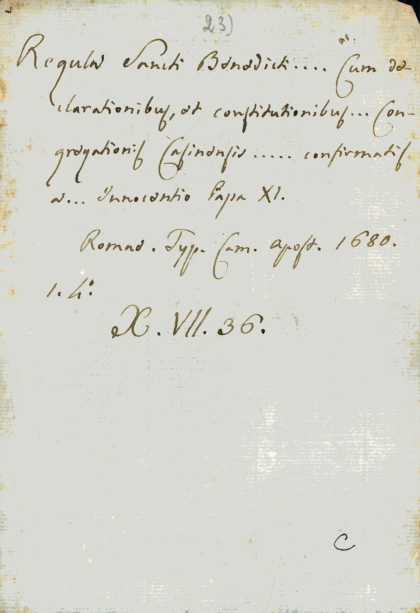 23)
Regula Sancti Benedicti.... Cum de-
clarationibus, et constitutionibus... Con-
gregationis Casinensis ..... confirmatis
a... Innocentio Papa XI.
Romae. Typ. Cam. Apost. 1680.
1. 4.º
X. VII. 36.
C